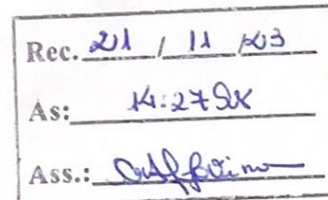 Rec. 21 / 11 / 23
As: 14:27
Ass.: